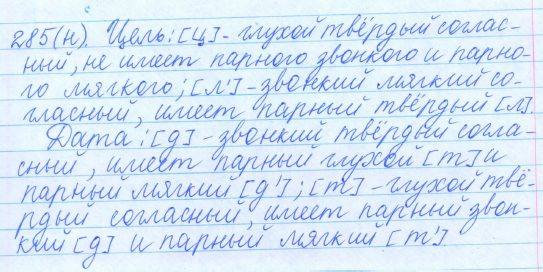 285(н). Цель: [ц] - глухой твёрдый соглас-
ный, не имеет парного звонкого и парно-
го мягкого; [л'] - звонкий мягкий со-
гласный, имеет парный твёрдый [л].
Дата: [д] - звонкий твёрдый согла-
сный, имеет парный глухой [т] и
парный мягкий [д']; [т] - глухой твё-
рдый согласный, имеет парный звон-
кий [д] и парный мягкий [т']